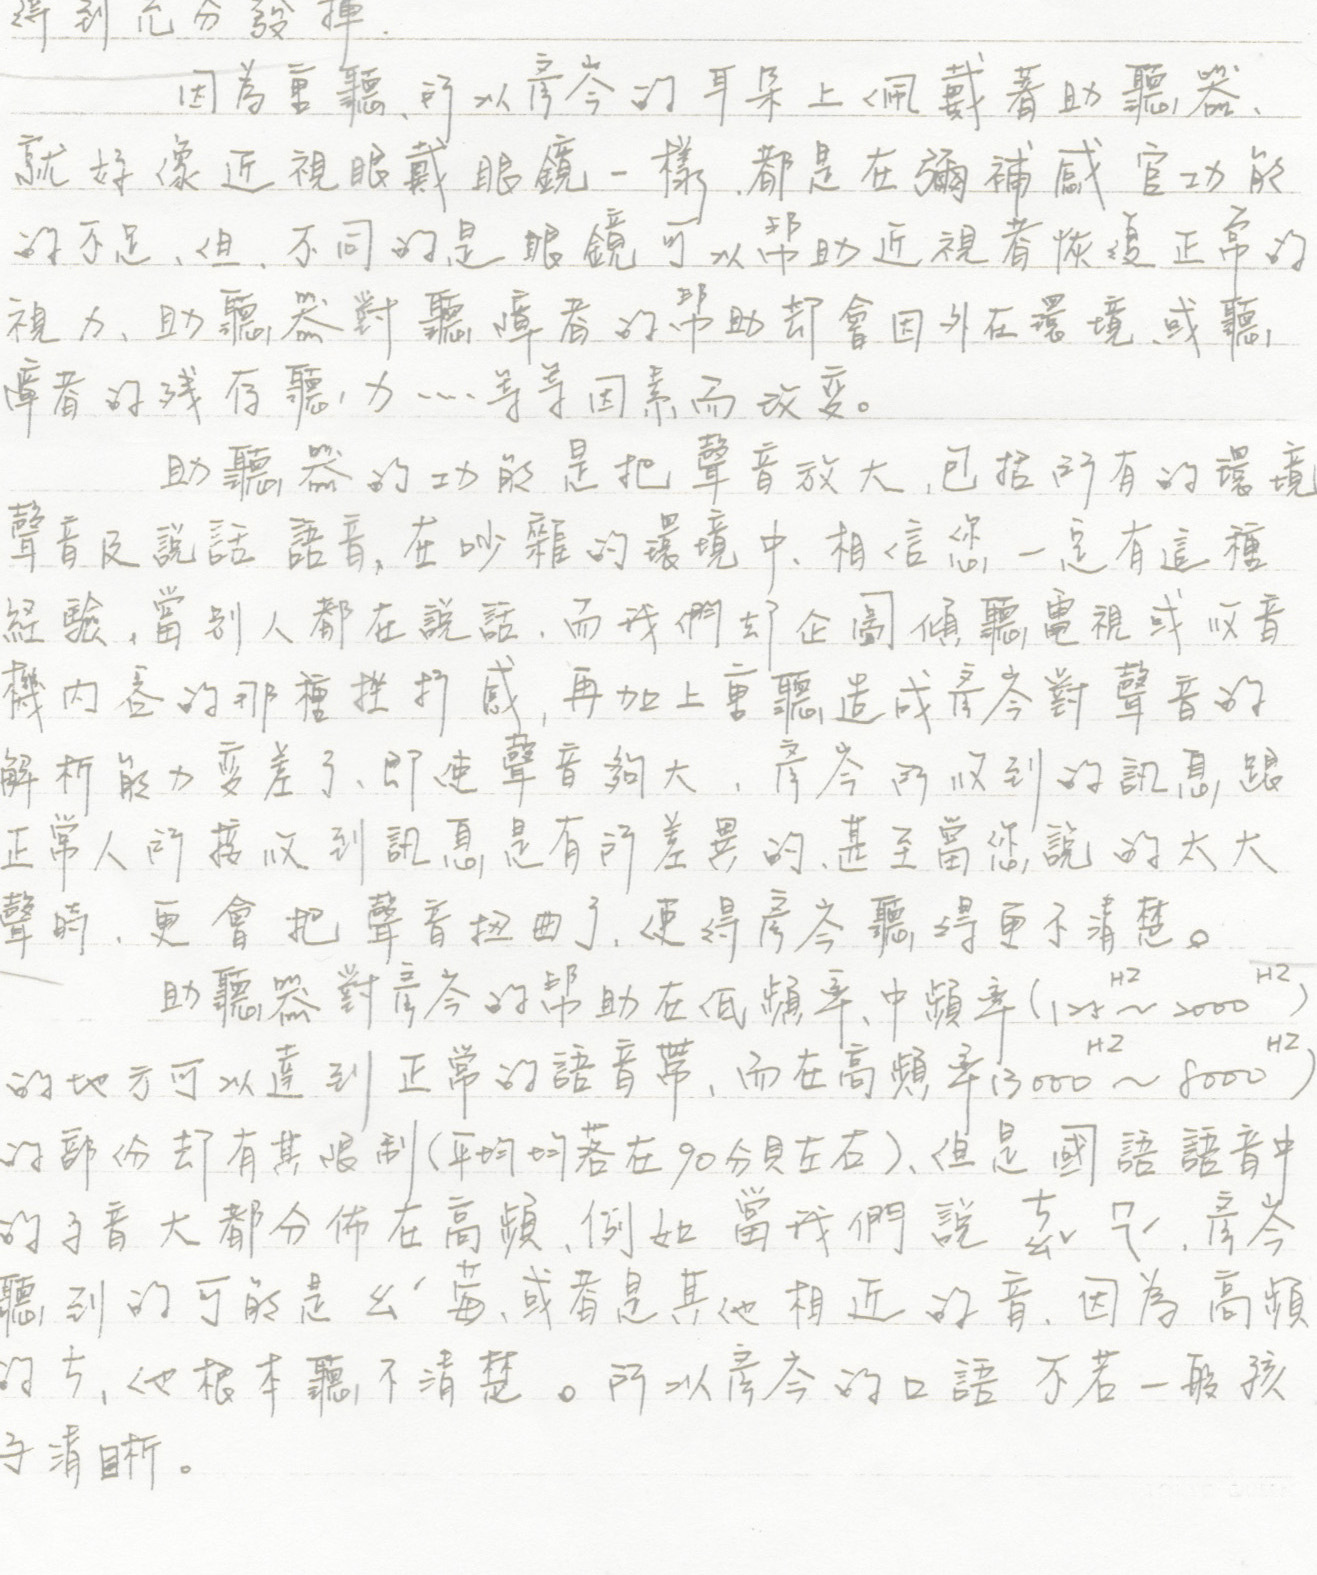 得到充分發揮.
因為重聽、所以彥岑的耳朵上佩戴著助聽器、
就好像近視眼戴眼鏡一樣、都是在彌補感官功能
的不足、但、不同的是眼鏡可以幫助近視者恢復正常的
視力、助聽器對聽障者的幫助却會因外在環境、或聽
障者的残存聽力……等等因素而改変。
助聽器的功能是把聲音放大、包括所有的環境
聲音及說話語音,在吵雜的環境中、相信您一定有這種
経驗,當別人都在說話、而我們却企圖傾聽電視或收音
機內容的那種挫折感,再加上重聽造成彥岑對聲音的
解析能力変差了、即使聲音夠大,彥岑所收到的訊息跟
正常人所接收到訊息是有所差異的、甚至當您說的太大
聲時、更會把聲音扭曲了、使得彥岑聽得更不清楚。
助聽器對彥岑的幫助在低頻率、中頻率(125HZ~2000HZ)
的地方可以達到正常的語音帶、而在高頻率(3000HZ~8000HZ)
的部份却有其限制(平均均落在90分貝左右)、但是國語語音中
的子音大都分佈在高頻、例如當我們說ㄘㄠˇㄇㄟˊ、彥岑
聽到的可能是ㄠˇ莓、或者是其他相近的音、因為高頻
的ㄘ、他根本聽不清楚。所以彥岑的口語不若一般孩
子清晰。